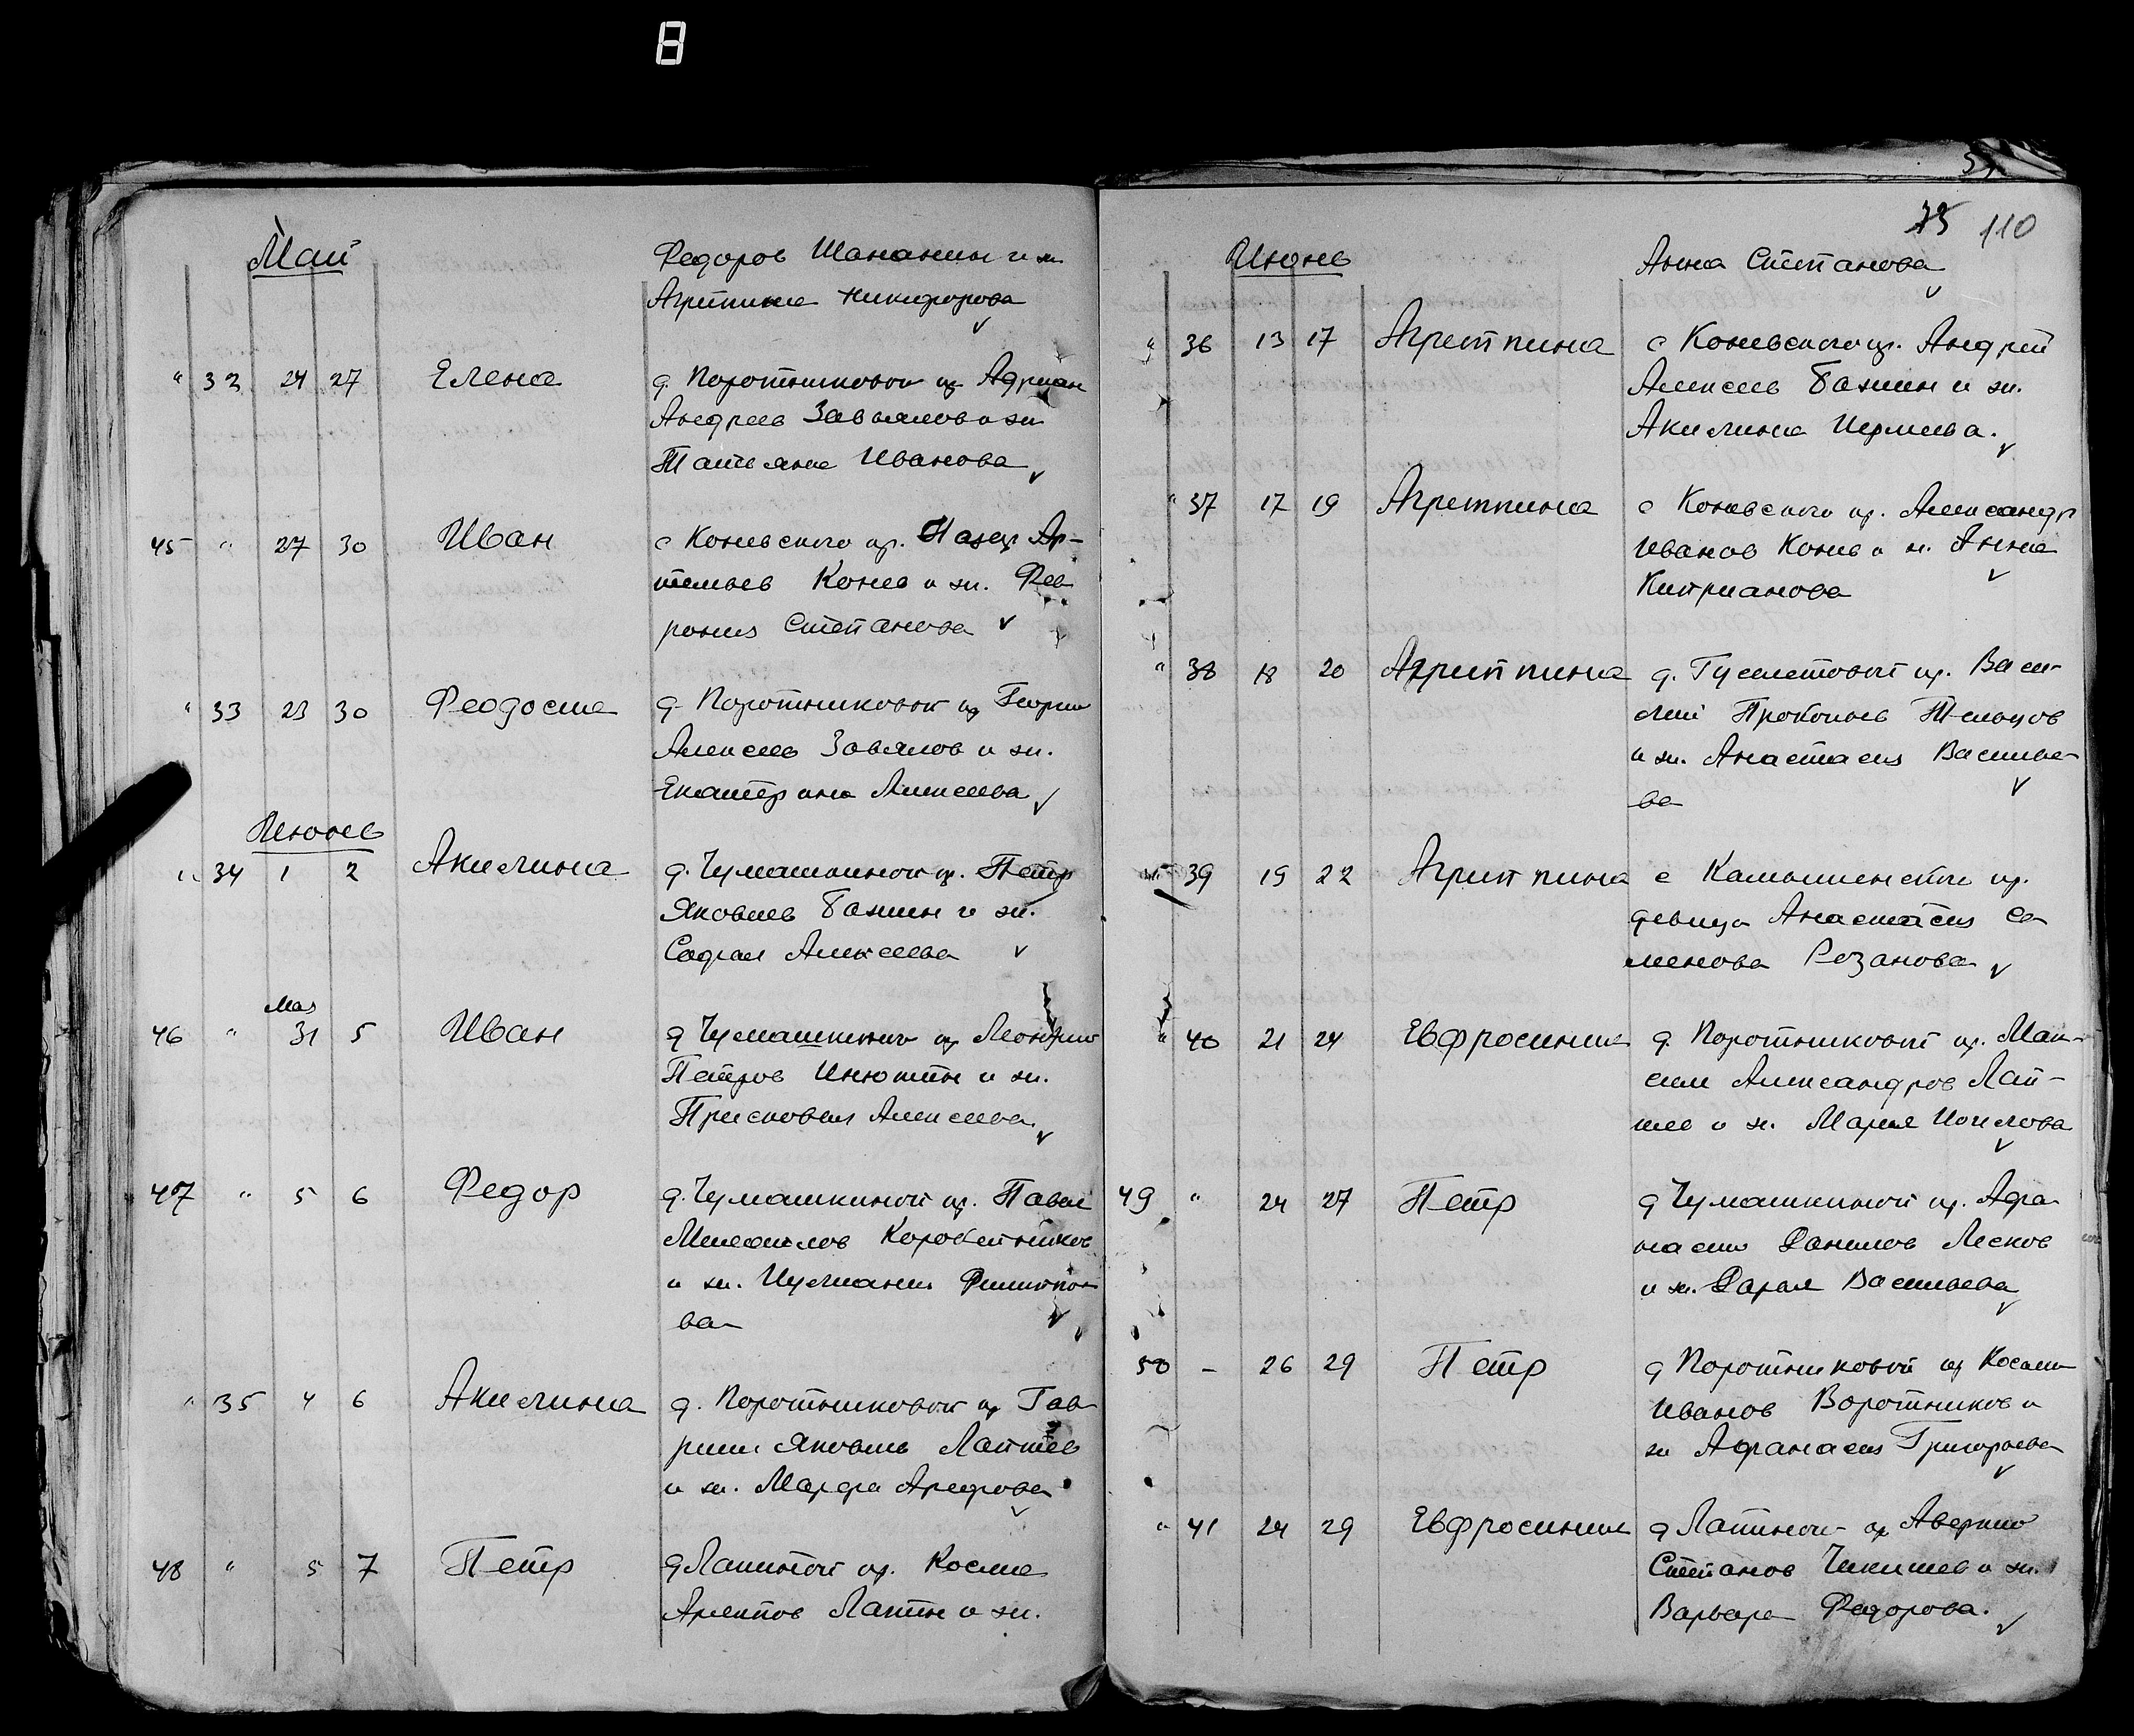 8
Май
Федоров Шананин и ж.
Агрипина Никифорова
" 32 24 27 Елена д. Поротниковой гр. Адриан
Андреев Завьялов и ж.
Татьяна Иванова
45 " 27 30 Иван с Коневского гр. Назар Ар-
темьев Конев и ж. Фев
рония Степанова
" 33 23 30 Феодосия д. Поротниковой гр Георгий
Алексеев Завялов и ж.
Екатерина Алексеева
Июнь
" 34 1 2 Акилина д. Чумашкиной гр. Петр
Яковлев Бажин и ж.
Софья Алексеева
Мая
46 " 31 5 Иван д Чумашкиной гр
Петров Инютин и ж.
Присковья Алексеева
47 " 5 6 Федор д. Чумашкиной гр. Павел
Михаилов Коробейников
и ж. Иулиания Филиппо
ва
" 35 4 6 Акилина д. Поротниковой гр Гав-
риил Яковлев Лаптев
и ж. Марфа Арефова
48 " 5 7 Петр д Лапиной гр. Косма
Лапин и ж.
75 110
Июнь
Анна Степанова
" 36 13 17 Агреппина с Коневского гр. Андрей
Алексеев Бажин и ж.
Акилина
" 37 17 19 Агреппина с Коневского гр. Александр
Иванов Конев и ж. Анна
Киприанова
" 38 18 20 Агриппина д. Гусилетовой гр. Васи-
лий Прокопьев Тельцов
и ж. Анастасия Василье-
ва
" 39 19 22 Агриппина с Камышенского гр.
девица Анастасия Се
менова Резанова
" 40 21 24 Евфросиния д. Поротниковой гр. Мак-
сим Александров Лап-
тев и ж. Мария
49 " 24 27 Петр д Чумашкиной гр. Афа
насий Данилов Лесков
и ж. Дарья Васильева
50 - 26 29 Петр д Поротниковой гр Косьма
Иванов Воротников и
ж Афанасия Григорьева
" 41 24 29 Евфросиния д Лапиной гр Аверкий
Степанов Чикишев и ж.
Варвара Федорова.